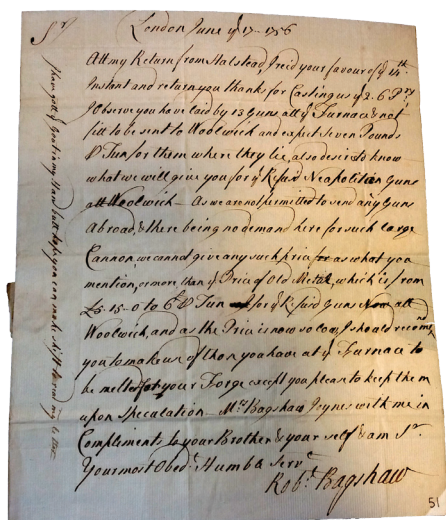 London June ye 17 - 1756
Sr
Att my Return from Halstead, I recd your favour of ye 14th
Instant and return you thanks for Casting us ye 2. 6 Prs
I Observe you have laid by 13 Guns att ye Furnace not
fitt to be sent to Woolwich and expect Seven Pounds
P Tun for them where they lie, also desire to know
what we will give you for ye Refusd Neapolitan Guns
att Woolwich - As we are not permitted to send any Guns
Abroad, & there being no demand here for such large
Cannon, we cannot give any such price for as what you
mention, or more than ye Price of Old Metal, which is from
£5-15-0 to 6£ P Tun for ye Refusd Guns att
Woolwich, and as the Price is now so low, I should recomend
you to make use of them you have at ye Furnace to
be melted for your Forge except you please to keep them
upon Speculation - Mr Bagshaw Joyns with me in
Compliments to your Brother & your self & am Sr
Your most Obedt Humble Servt
Robt Bagshaw
I have gott ye in my Hand butt hope you can make better
51